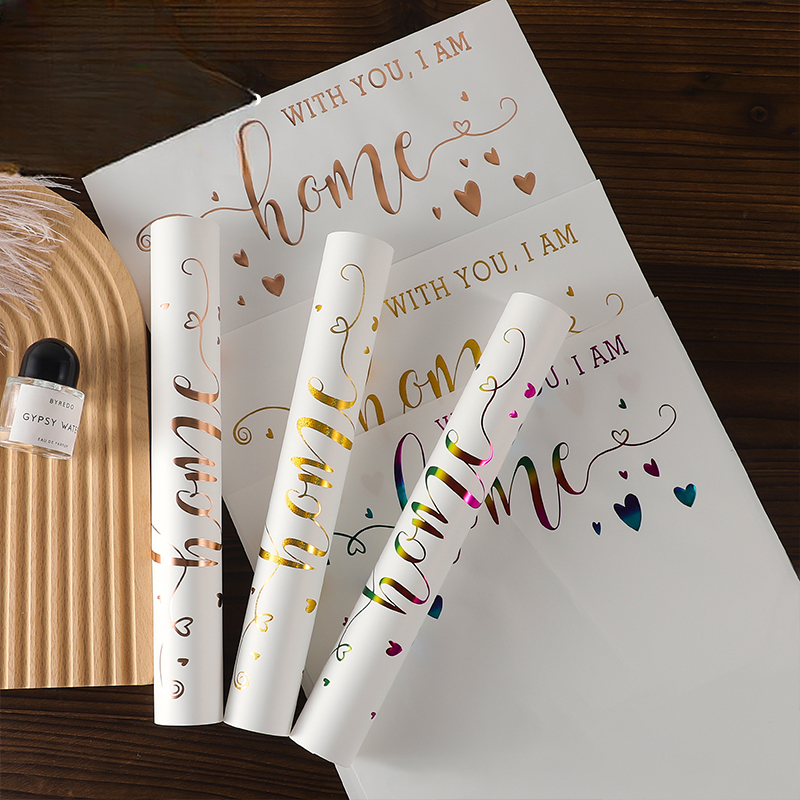 WITH YOU, I AM
home
WITH YOU, I AM
home
WITH YOU, I AM
home
home
home
home
BYREDO
GYPSY WATE
EAU DE PARFUM